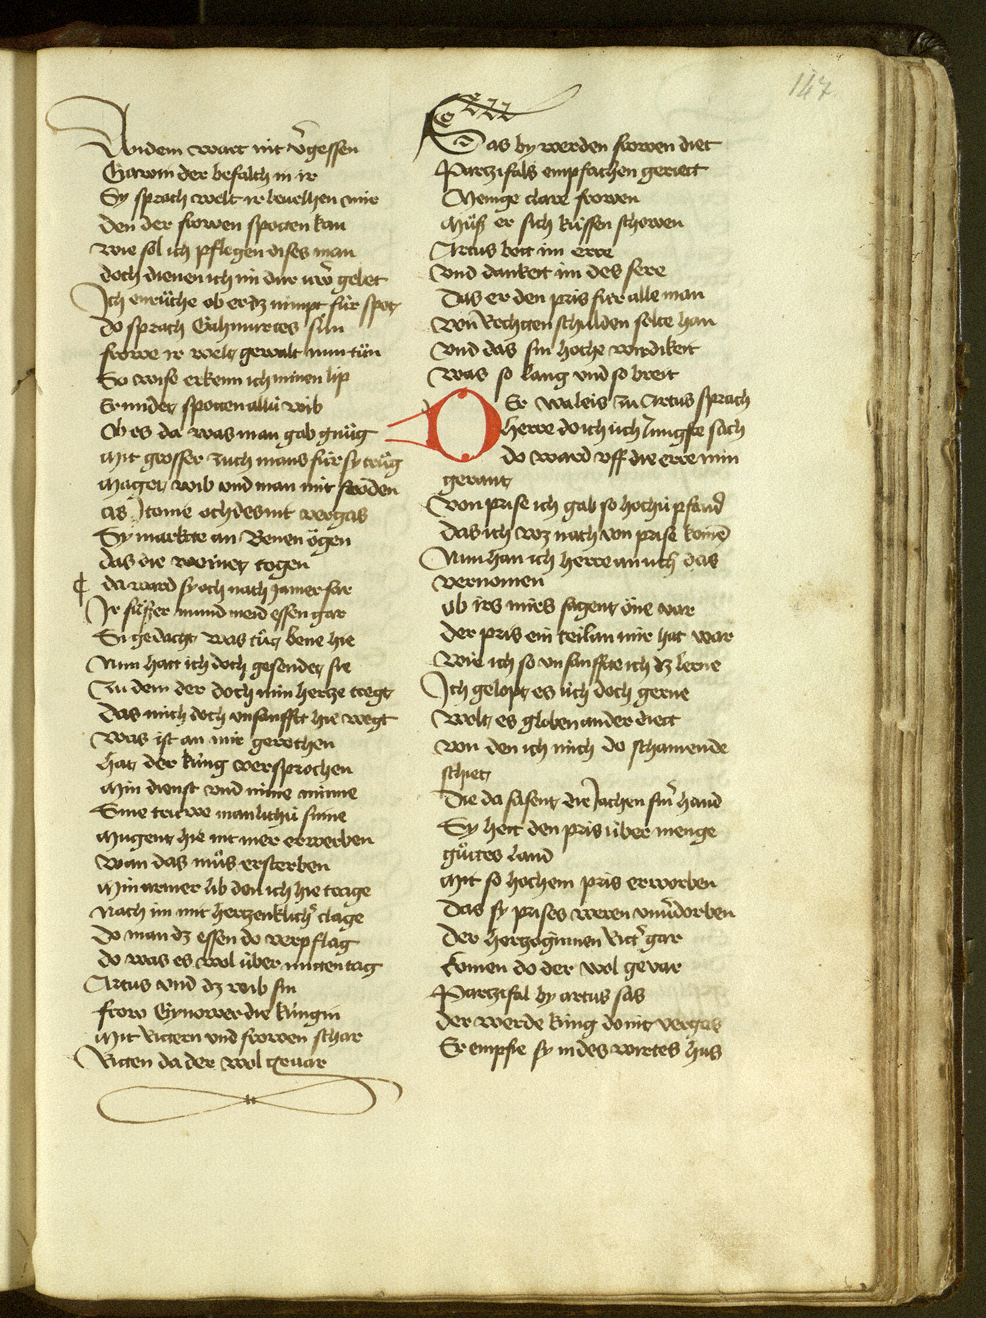 147
An dem wart nit v̄gessen
Gawin der befalch in ir
Sy sprach welt ir bevelhen mir
den der frowen spotten kan
wie sol ich pflegen dises man
doch dienen ich im dur uwr̄ gebet
Ich enrůche ob er dz nimpt für spot
do sprach Gahmurtes sůn
frowe ir welt gewalt nun tůn
So wise erkenn ich minen lip
Er midet spotten allü wib
Ob es da was man gab gnůg
Mit grosser zuch mans für sy trůg
Maget wib und man mit fröden
as Itonie och des nit vergas
Sy markte an Benen ögen
das die weinet togen
da ward sy och nach jamer far
Ir süsser mund meid essen gar
Si gedacht was tůt bene hie
Nun hatt ich doch gesendet sie
Zu dem der doch min hertze tregt
Das mich doch unsanfft hie wegt
Was ist an mir gerochen
hat der küng versprochen
Min dienst und mine minne
Sine trüwe manlichü sinne
Mugent hie nit mer erwerben
wan das můs ersterben
Min armer lib den ich hie trage
Nach im mit hertzenklichr̄ clage
Do man dz essen do verpflag
do was es wol über mitten tag
Artus und dz wib sin
frow Gynower die küngin
Mit Rittern und frowen schar
Ritten da der wol gevar
Das by werden frowen diet
Partzifals empfachen geriett
Menige clare frowen
Müß er sich küssen schowen
Artus bott im erre
Und danckett im des sere
Das er den pris für alle man
Von Rechten schulden solte han
Und das sin hoche wirdikeit
Was so lang und so breit
Er waleis zu Artus sprach
herre do ich üch Jungste sach
do ward uff die erre min
gerant
Von prise ich gab so hochü pfand
das ich wz nach von prise komē
Nun han ich herre an üch das
vernomen
ob irs mirs sagent öne var
der pris ein teil an mir hat war
Wie ich so unsanffte ich dz lerne
Ich gelopt es üch doch gerne
Wolt es globen ander diett
Von den ich mich do schamende
schiet
Die da sasent die Jachen sinr̄ hand
Sy hett den pris über menge
gůttes Land
Mit so hochem pris erworben
Das sy prises weren unv̄dorben
Der hertzoginnen Rittr̄ gar
komen do der wol gevar
Partzifal by artus sas
der werde küng do nit vergas
Er empfie sy in des wirtes hus